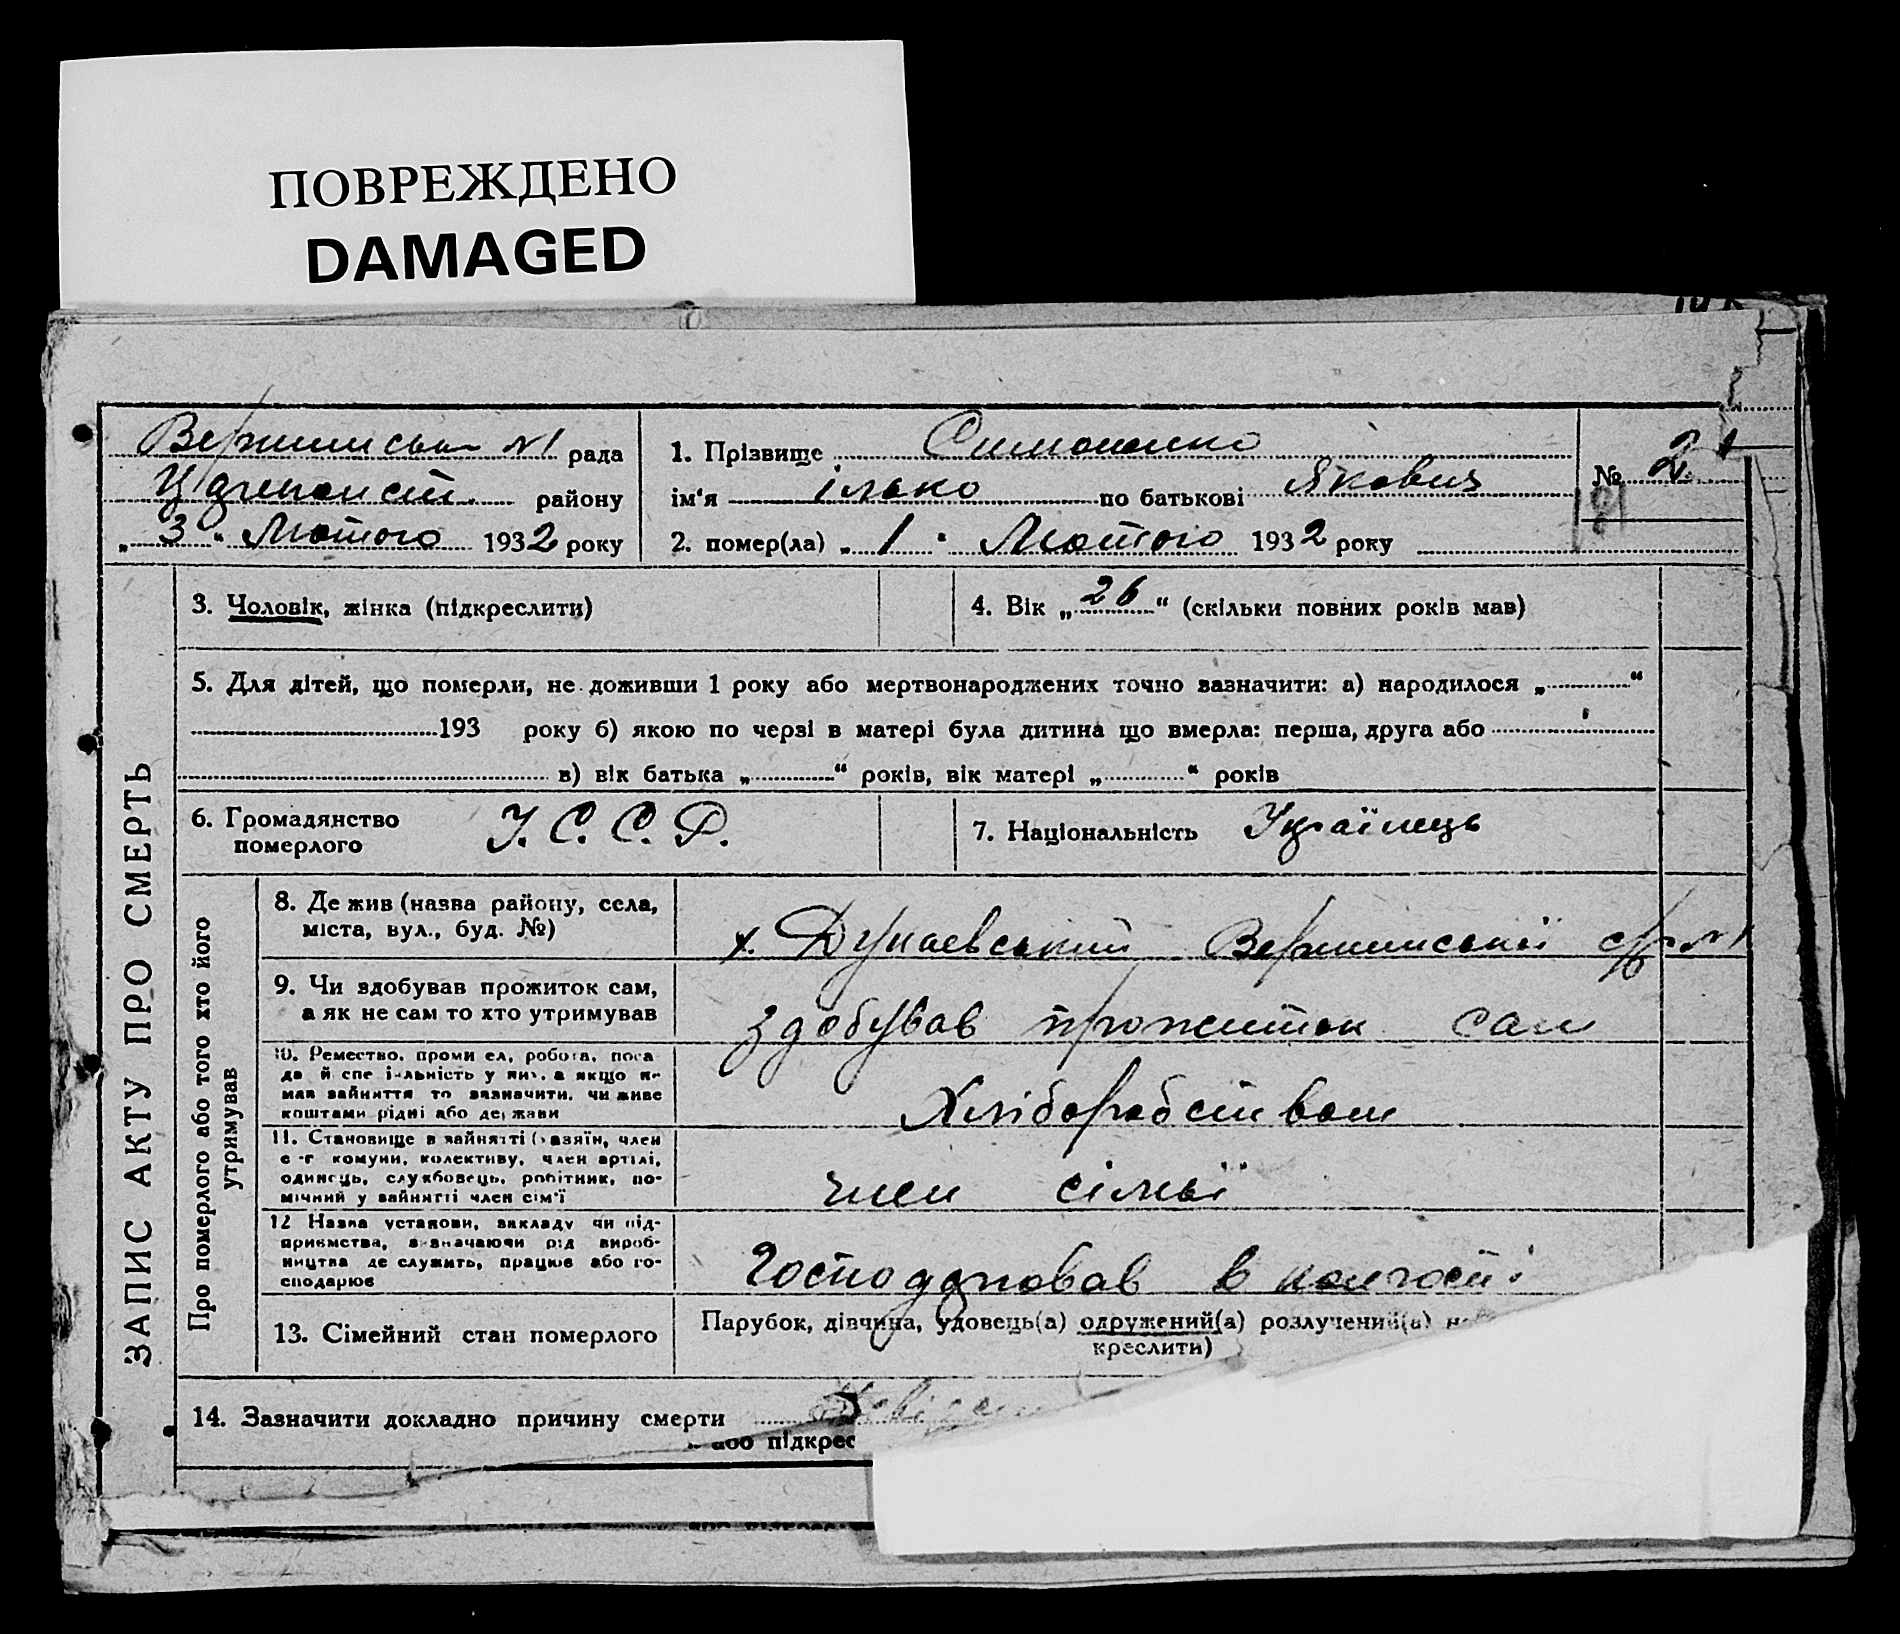 ПОВРЕЖДЕНО
DAMAGED
Вершинська №1 рада
району
„ 3 “ Лютого 1932 року
1. Прізвище Симоненко
ім‘я Ілько по батькові Якович
2. помер(ла) „ 1 “ Лютого 1932 року
№ 2
ЗАПИС АКТУ ПРО СМЕРТЬ
3. Чоловік, жінка (підкреслити)
4. Вік „ 26 “ (скільки повних років мав)
5. Для дітей, що померли, не доживши 1 року або мертвонароджених точно зазначити: а) народилося „ “
193 року б) якою по черзі в матері була дитина що вмерла: перша, друга або
в) вік батька „ “ років, вік матері „ “ років
6. Громадянство
померлого
У. С. С. Р.
7. Національність Українець
Про померлого або того хто його
утримував
8. Де жив (назва району, села,
міста, вул., буд. №)
х. Дунаевський Вершинської с/р №1
9. Чи здобував прожиток сам,
а як не сам то хто утримував
здобував прожиток сам
10. Ремество, проми ел, робота, поса
да й спе і льність у них, а якщо не
мав зайняття то зазначити, чи живе
коштами рідні або держави
Хліборобством
11. Становище в зайнятті (хазяїн, член
с -г комуни, колективу, член артілі,
одинець, службовець, робітник, по-
мічний у зайнятті член сім‘ї
член сім'ї
12 Назва установи, закладу чи під-
приємства, зазначаючи рід вироб-
ництва де служить, працює або го-
сподарює
Господарював в колгоспі
13. Сімейний стан померлого
Парубок, дівчина, удовець(а) одружений(а) розлучений(а)
креслити)
14. Зазначити докладно причину смерти
або підкрес